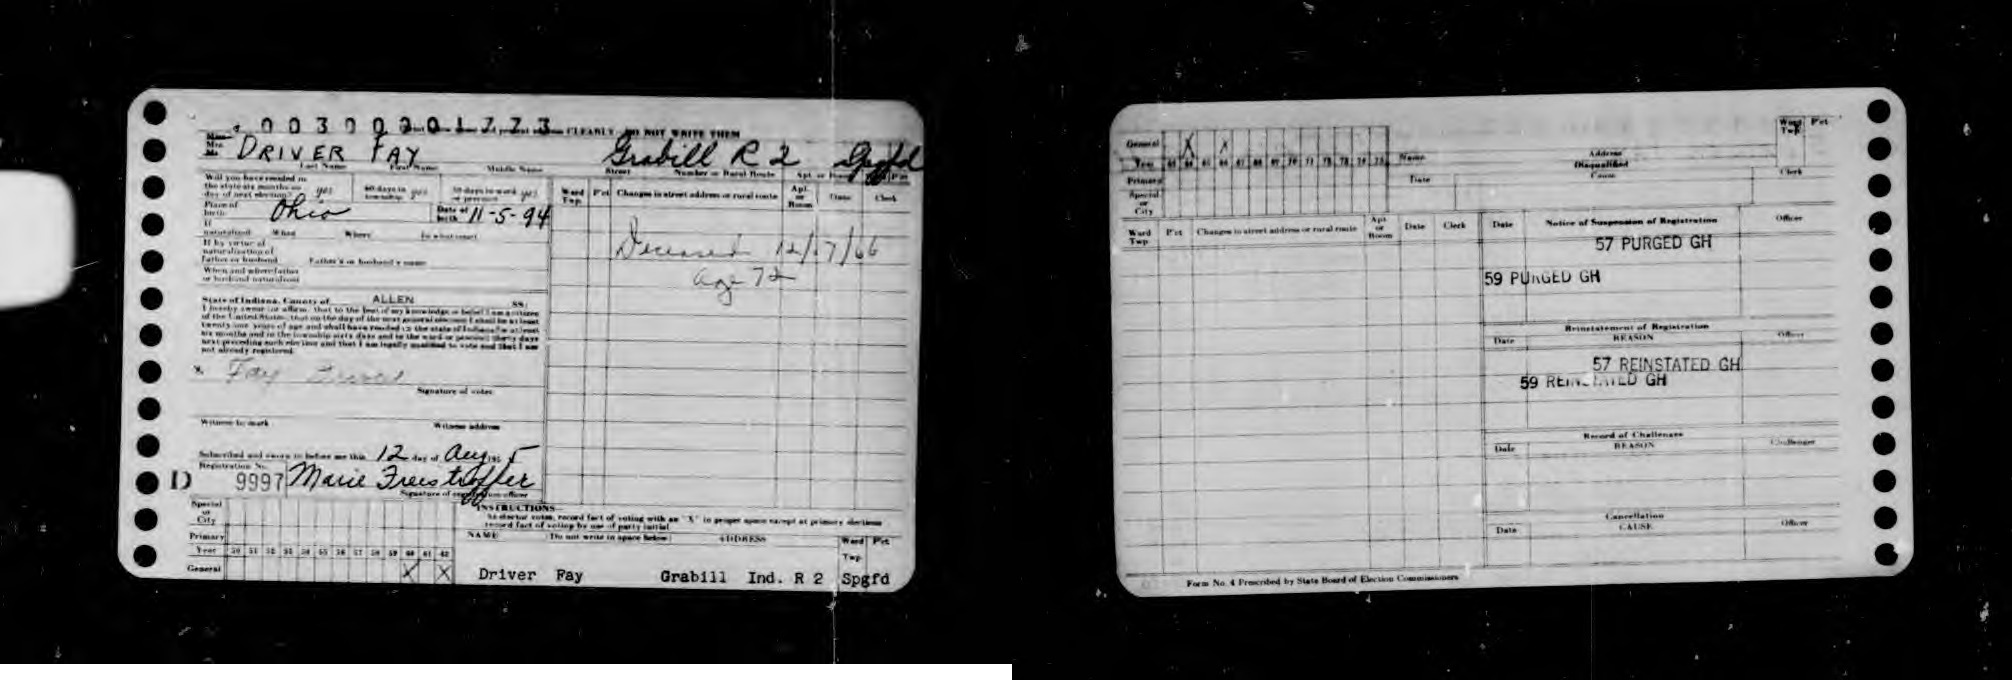 003000201773 CLEARLY DO NOT WRITE THEM
Miss
Mrs.
Mr. DRIVER FAY Grabill R 2 Spgfd
Last Name First Name Middle Name Street Number or Rural Route Apt. or Room Pct
Will you have resided in
the state six months on
day of next election? yes 60 days in township yes 30 days in ward or precinct yes
Ward Twp. Pct Changes in street address or rural route Apt. or Room Date Clerk
Place of birth Ohio Date of birth 11-5-94
If naturalized When Where In what court
If by virtue of
naturalization of
Father or husband Father's or husband's name
When and where father
or husband naturalized
Deceased 12/17/66
age 72
State of Indiana, County of ALLEN SS:
I hereby swear (or affirm) that to the best of my knowledge or belief I am a citizen
of the United States; that on the day of the next general election I shall be at least
twenty-one years of age and shall have resided in the state of Indiana for at least
six months and in the township sixty days and in the ward or precinct thirty days
next preceding such election and that I am legally qualified to vote and that I am
not already registered.
X Fay Driver
Signature of voter
Witness to mark Witness address
Subscribed and sworn to before me this 12 day of Aug 195 5
Registration No.
D 9997 Marie Freistroffer
Signature of registration officer
Special
or
City
Primary
Year 50 51 52 53 54 55 56 57 58 59 60 61 62
General X X
INSTRUCTIONS
As elector votes, record fact of voting with an "X" in proper space except at primary elections
record fact of voting by use of party initial
NAME (Do not write in space below) ADDRESS Ward Twp. Pct
Driver Fay Grabill Ind. R 2 Spgfd
General X X
Year 63 64 65 66 67 68 69 70 71 72 73 74 75
Primary
Special
or
City
Name Address Ward Twp. Pct
Disqualified
Date Cause Clerk
Ward Twp. Pct Changes in street address or rural route Apt. or Room Date Clerk
Date Notice of Suspension of Registration Officer
57 PURGED GH
59 PURGED GH
Reinstatement of Registration
Date REASON Officer
57 REINSTATED GH
59 REINSTATED GH
Record of Challenges
Date REASON Challenger
Cancellation
Date CAUSE Officer
Form No. 4 Prescribed by State Board of Election Commissioners